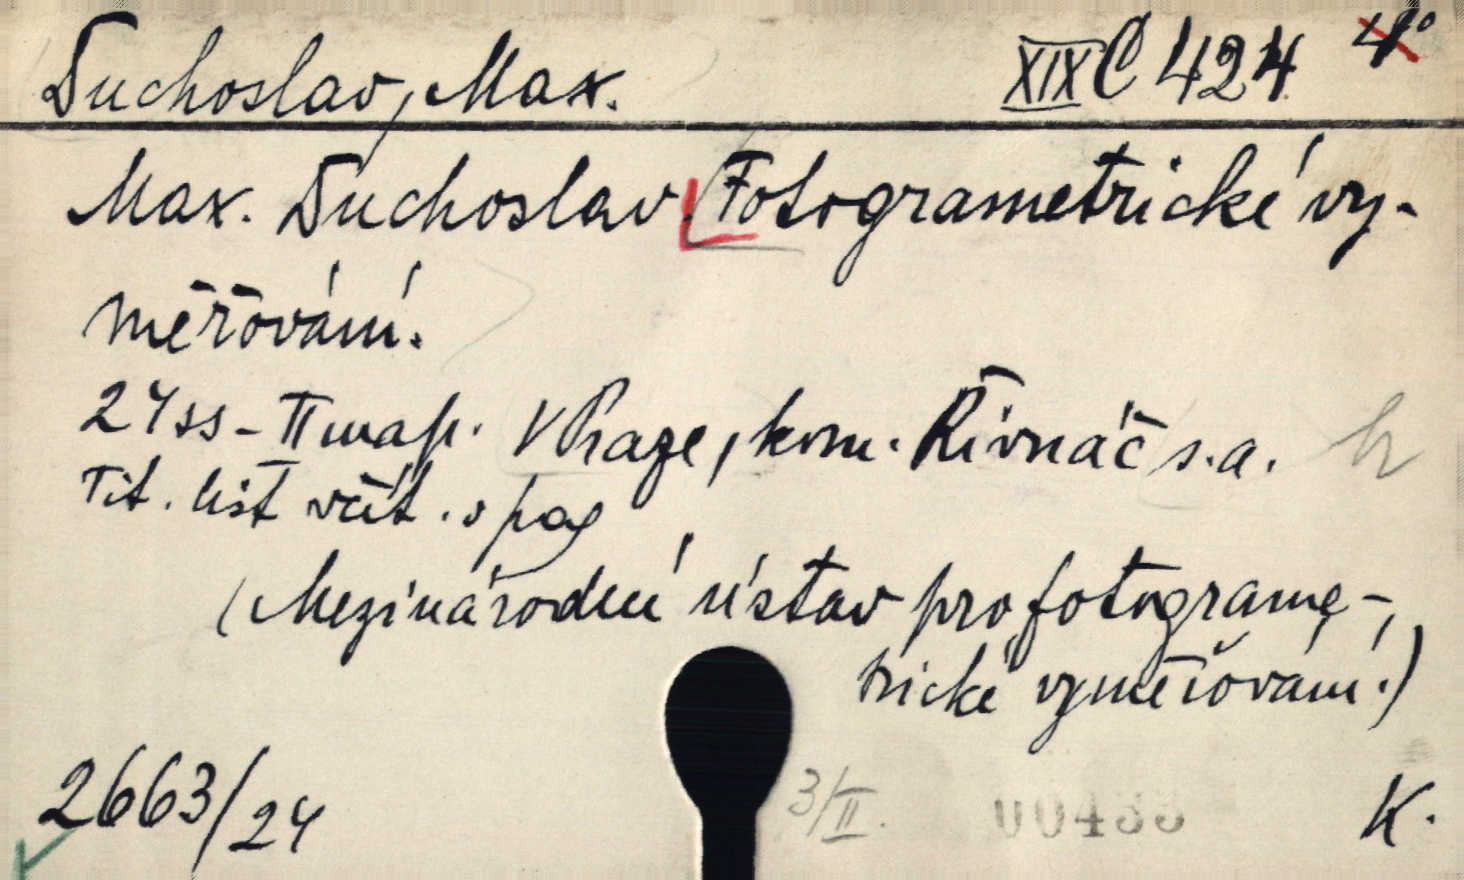 Duchoslav, Max. XIX C 424 4°
Max. Duchoslav Fotogrametrické vy-
měřování.
24ss - II map. V Praze, kom. Řivnáč s.a.
Tit. list včít. v pag
(Mezinárodní ústav pro fotograme-
trické vyměřování.)
2663/24 3/II. 00433 K.